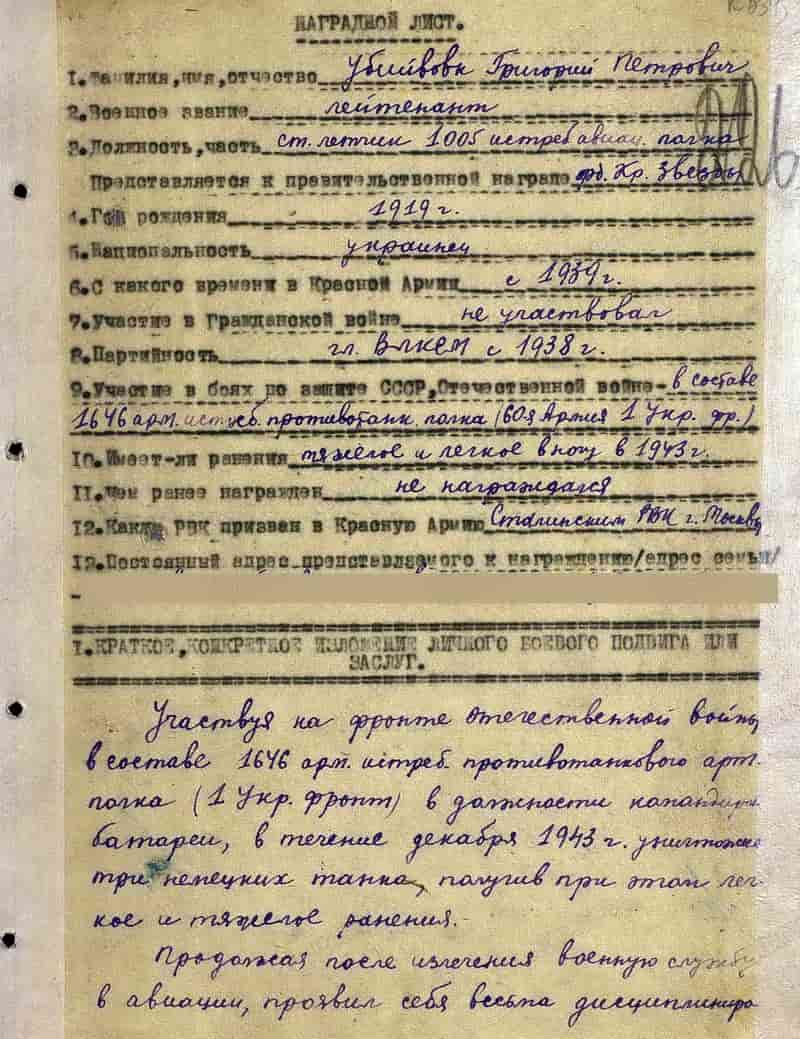 НАГРАДНОЙ ЛИСТ.
1.Фамилия,имя,отчество Убийвовк Григорий Петрович
2.Военное звание лейтенант
3.Должность,часть ст. летчик 1005 истреб авиац. полка
Представляется к правительственной награде орд. Кр. Звезды
4.Год рождения 1919 г.
5.Национальность украинец
6.С какого времени в Красной Армии с 1939 г.
7.Участие в Гражданской войне не участвовал
8.Партийность чл. ВЛКСМ с 1938 г.
9.Участие в боях по защите СССР,Отечественной войне- в составе
1646 арм. истреб. противотанк. полка (60я Армия 1 Укр. фр.)
10.Имеет-ли ранения тяжелое и легкое в ногу в 1943 г.
11.Чем ранее награжден не награждался
12.Каким РВК призван в Красную Армию Сталинским РВК г. Москвы
12.Постоянный адрес представляемого к награждению/адрес семьи/
-
1.КРАТКОЕ,КОНКРЕТНОЕ ИЗЛОЖЕНИЕ ЛИЧНОГО БОЕВОГО ПОДВИГА ИЛИ
ЗАСЛУГ.
Участвуя на фронте Отечественной войны
в составе 1646 арм. истреб. противотанкового арт.
полка (1 Укр. фронт) в должности командира
батареи, в течение декабря 1943 г. уничтожил
три немецких танка, получив при этом лег-
кое и тяжелое ранения.
Продолжая после излечения военную службу
в авиации, проявил себя весьма дисциплиниро